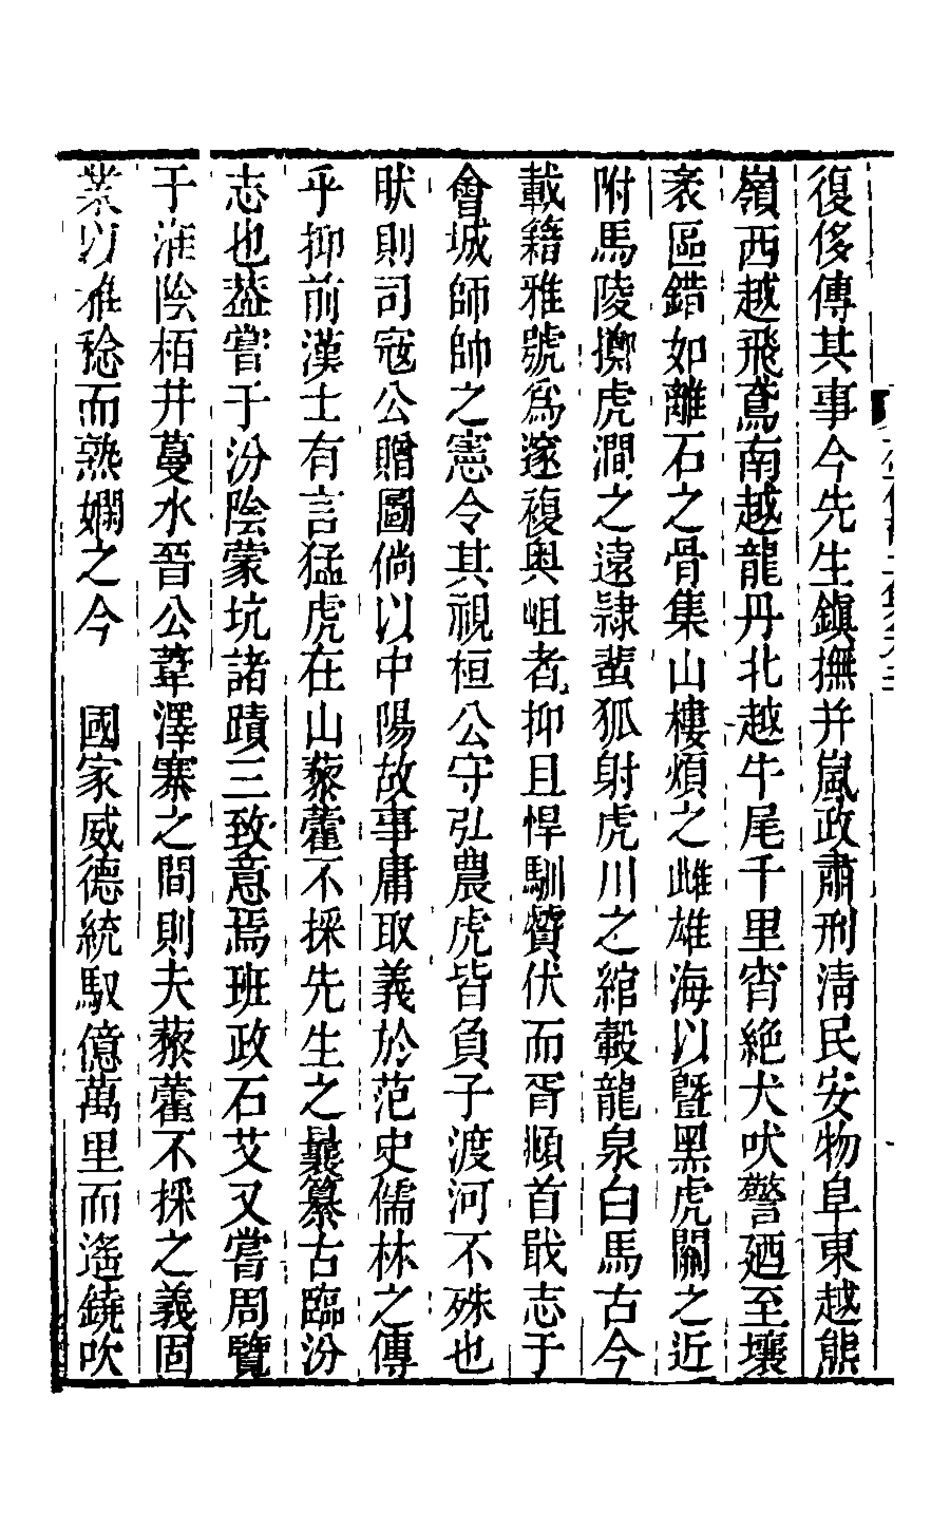 復侈傳其事今先生鎭撫并嵐政肅刑淸民安物阜東越熊
嶺西越飛鳶南越龍丹北越牛尾千里宵絶犬吠警廼至壤
袤區錯如離石之骨集山樓煩之雌雄海以曁黑虎關之近
附馬陵擲虎澗之遠隷蜚狐射虎川之綰轂龍泉白馬古今
載籍雅號爲邃複奥岨者抑且悍馴贙伏而胥順首戢志于
會城師帥之憲令其視桓公守弘農虎皆負子渡河不殊也
肰則司宼公贈圖倘以中陽故事庸取義於范史儒林之傳
乎抑前漢士有言猛虎在山藜藿不採先生之曩纂古臨汾
志也葢嘗于汾陰蒙坑諸蹟三致意焉班政石艾又嘗周覽
于淮陰栢井蔓水晉公葦澤寨之間則夫藜藿不採之義固
業以雅稔而熟嫻之今　國家威德統馭億萬里而遙鐃吹